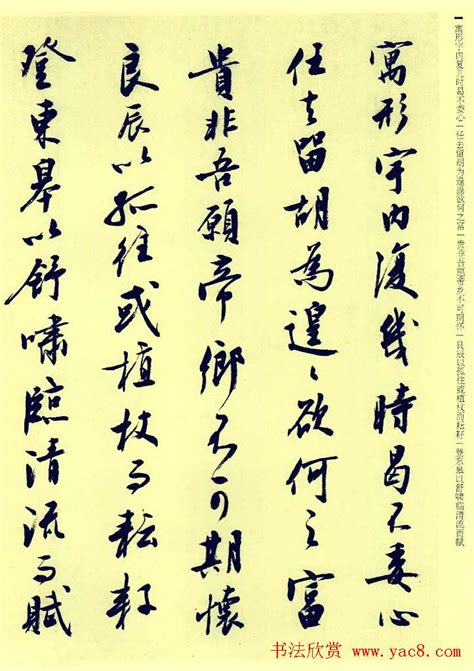 寓形宇内复几时曷不委心｜任去留胡为遑遑欲何之富｜贵非吾愿帝乡不可期怀｜良辰以孤往或植杖而耘耔｜登东皋以舒啸临清流而赋
寓形宇内復幾時曷不委心
任去留胡為遑〻欲何之富
貴非吾願帝鄉不可期懷
良辰以孤往或植杖而耘耔
登東皋以舒嘯臨清流而賦
书法欣赏 www.yac8.com